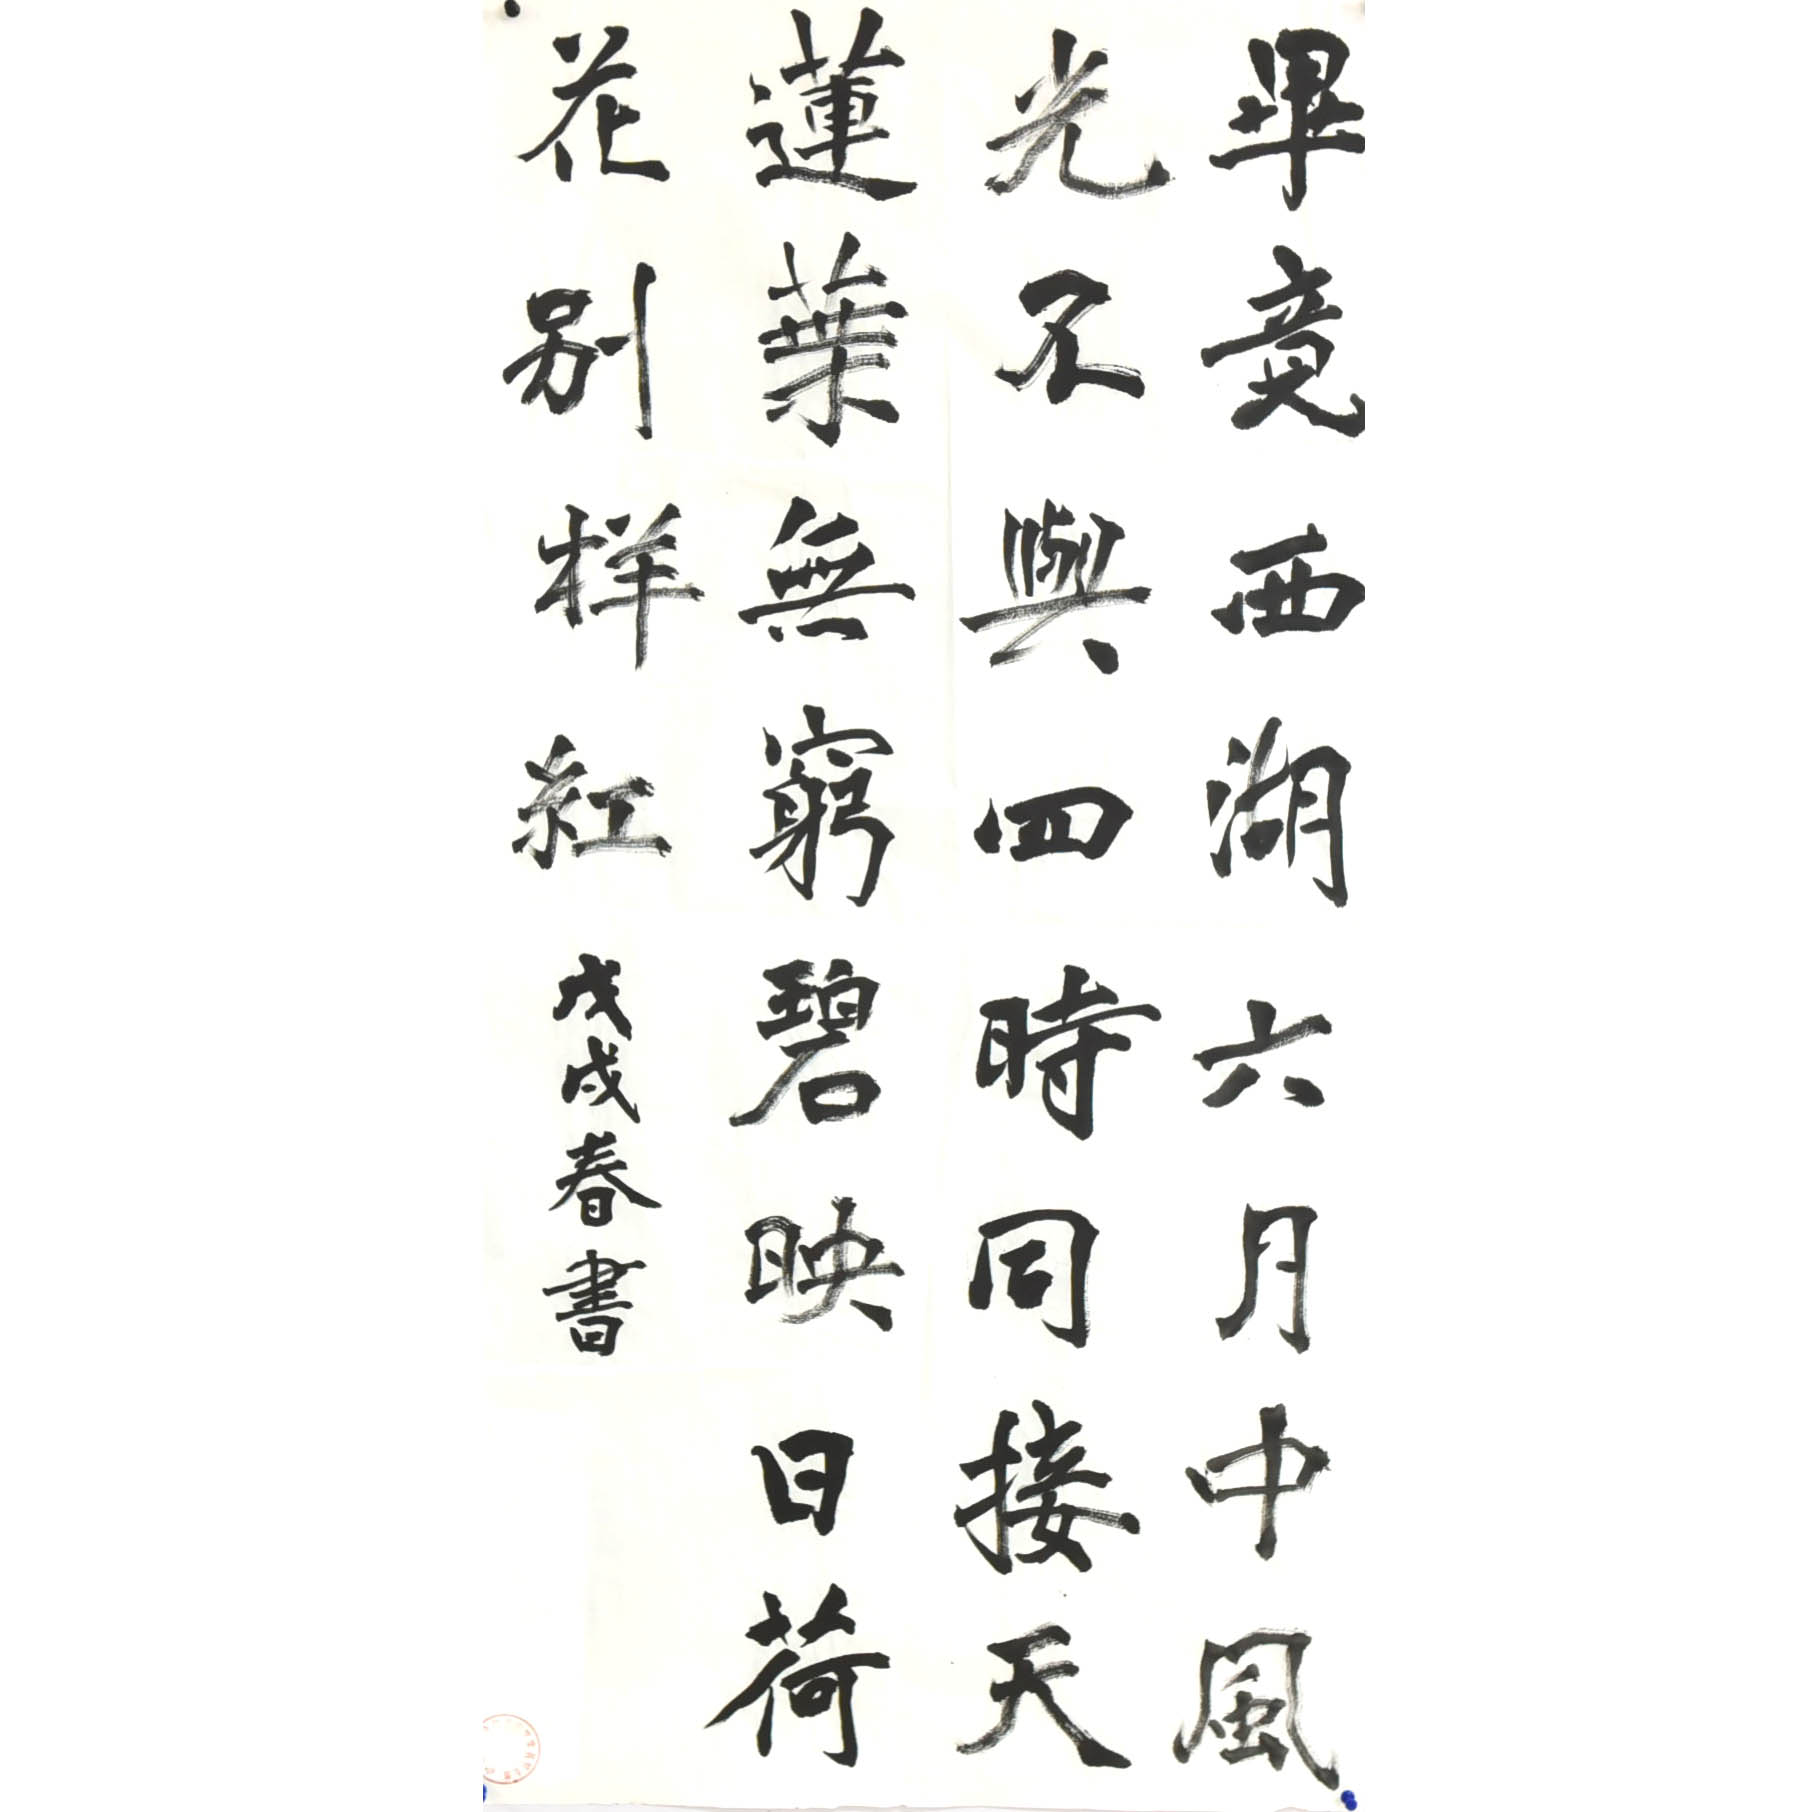 畢竟西湖六月中風
光不與四時同接天
蓮葉無窮碧映日荷
花别样紅
戊戌春書